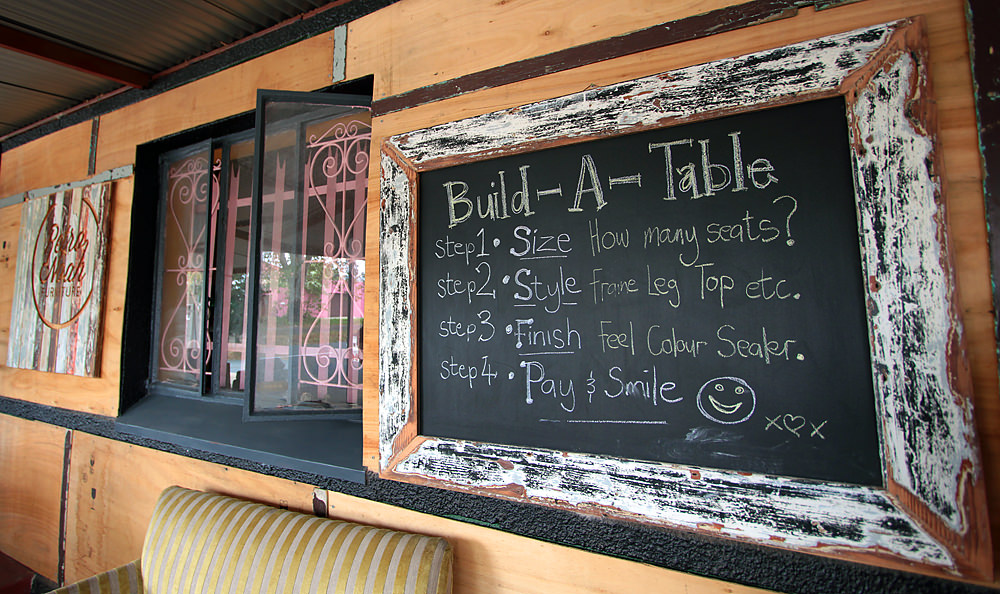 Build-A-Table
step 1 • Size How many seats?
step 2 • Style Frame Leg Top etc.
step 3 • Finish Feel Colour Sealer.
step 4 • Pay & Smile
x♡x
FURNITURE